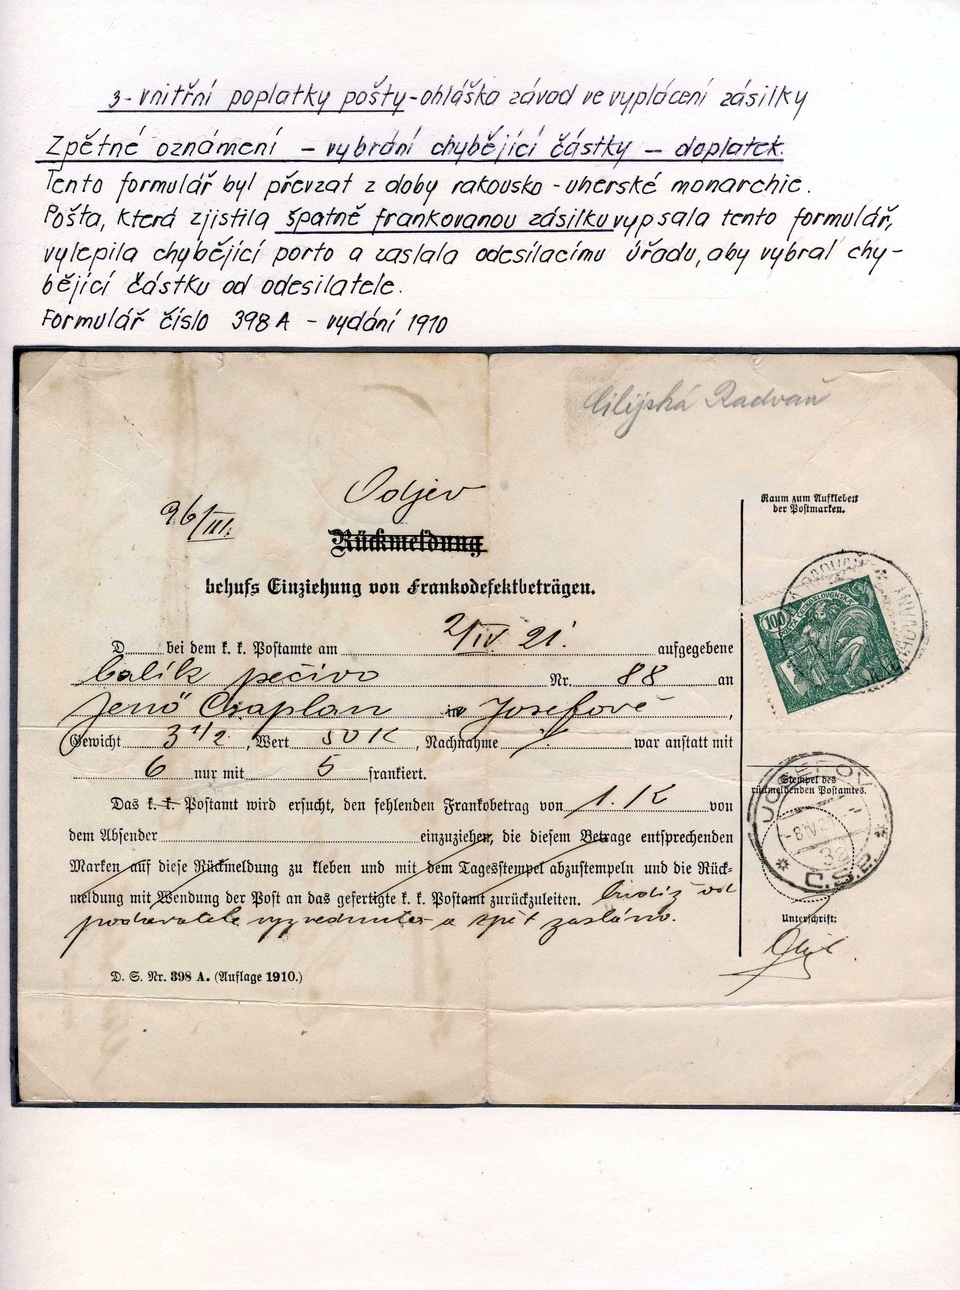 3-vnitřní poplatky pošty-ohláška závad ve vyplácení zásilky
Zpětné oznámení - vybrání chybějící částky - doplatek.
Tento formulář byl převzat z doby rakousko-uherské monarchie.
Pošta, která zjistila špatně frankovanou zásilku vypsala tento formulář,
vylepila chybějící porto a zaslala odesílacímu úřadu, aby vybral chy-
bějící částku od odesilatele.
Formulář číslo 398 A - vydání 1910
Cilijská Radvaň
Odjev
96/III.
Rückmeldung
behufs Einziehung von Frankodefektbeträgen.
Raum zum Aufkleben
der Postmarken.
100
POŠTA ČESKOSLOVENSKÁ
RADVAŇ
D...... bei dem k. k. Postamte am 2/IV 21. aufgegebene
balík pečivo Nr. 88 an
Jenö Csaplan in Josefově,
Gewicht 3 1/2, Wert 50 K, Nachnahme /. war anstatt mit
6 nur mit 5 frankiert.
Das k. k. Postamt wird ersucht, den fehlenden Frankobetrag von 1. K von
dem Absender einzuziehen, die diesem Betrage entsprechenden
Marken auf diese Rückmeldung zu kleben und mit dem Tagesstempel abzustempeln und die Rück-
meldung mit Wendung der Post an das gefertigte k. k. Postamt zurückzuleiten. budiž od
podavatele vyzvednuto a zpět zasláno.
Stempel des
rückmeldenden Postamtes.
JOSEFOV
-8.IV
32
Č.S.P.
Unterschrift:
D. S. Nr. 398 A. (Auflage 1910.)